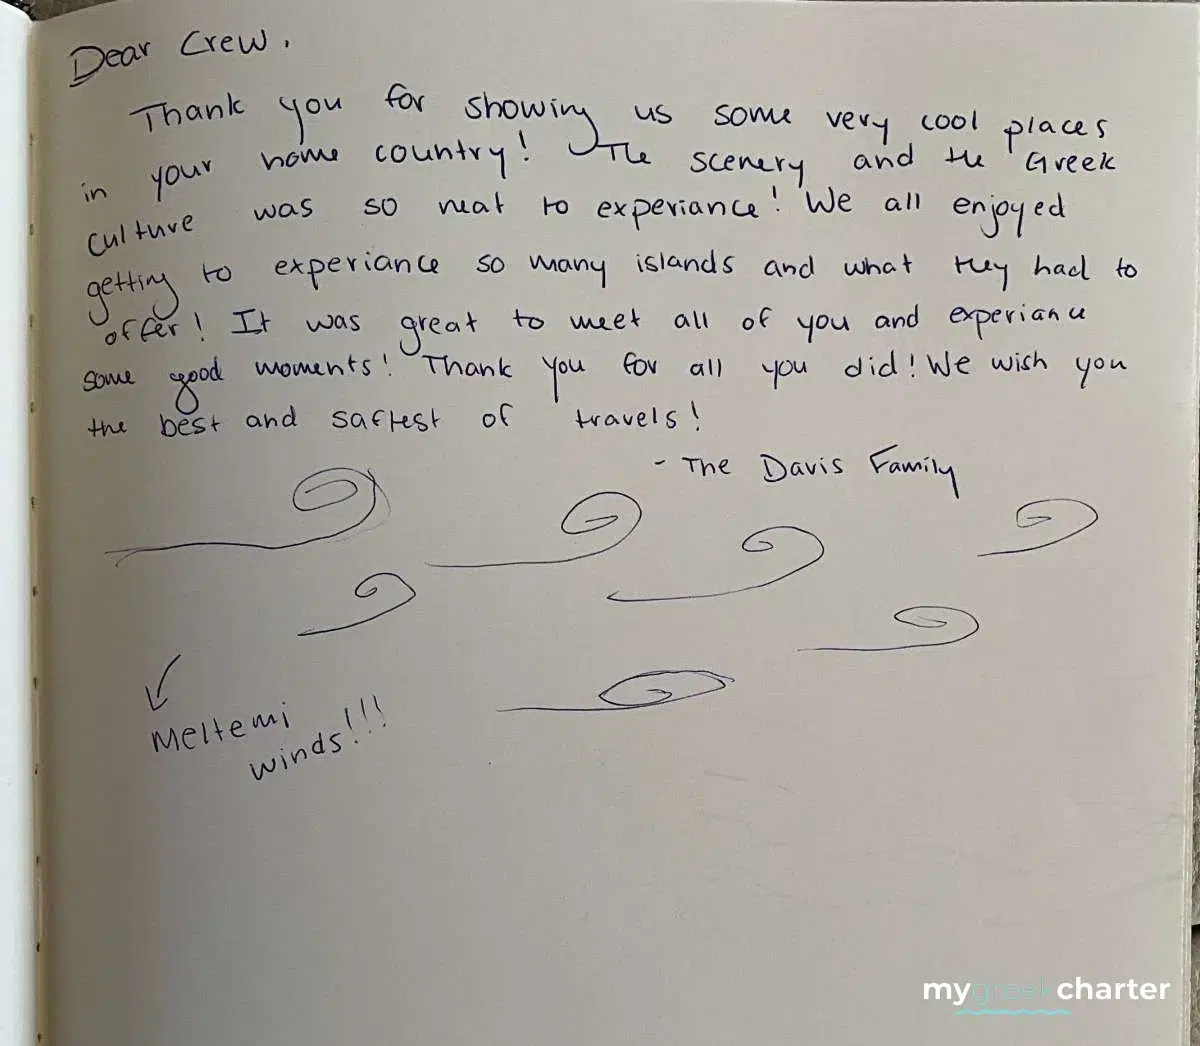 Dear Crew,
Thank you for showing us some very cool places
in your home country! The scenery and the Greek
culture was so neat to experiance! We all enjoyed
getting to experiance so many islands and what they had to
offer! It was great to meet all of you and experiance
some good moments! Thank you for all you did! We wish you
the best and saftest of travels!
- The Davis Family
Meltemi
winds!!!
mygreekcharter